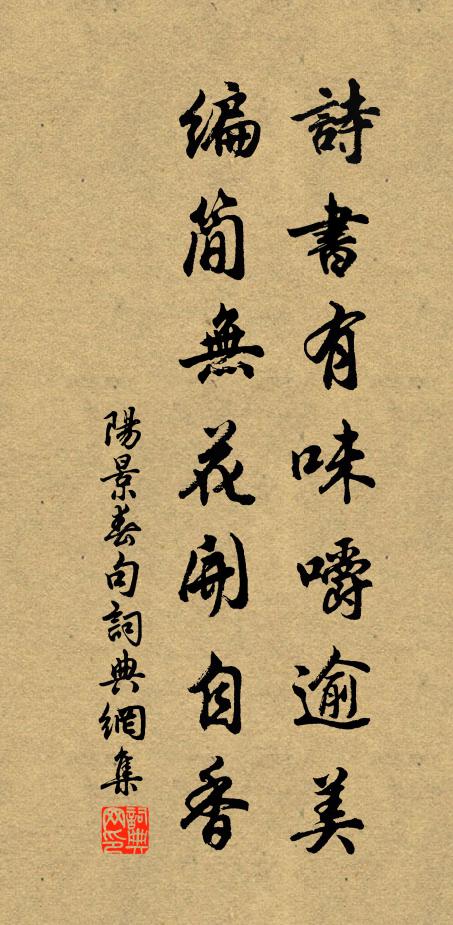 詩書有味嚼逾美
編简無花開自香
陽景春句詞典網集
詞典网印